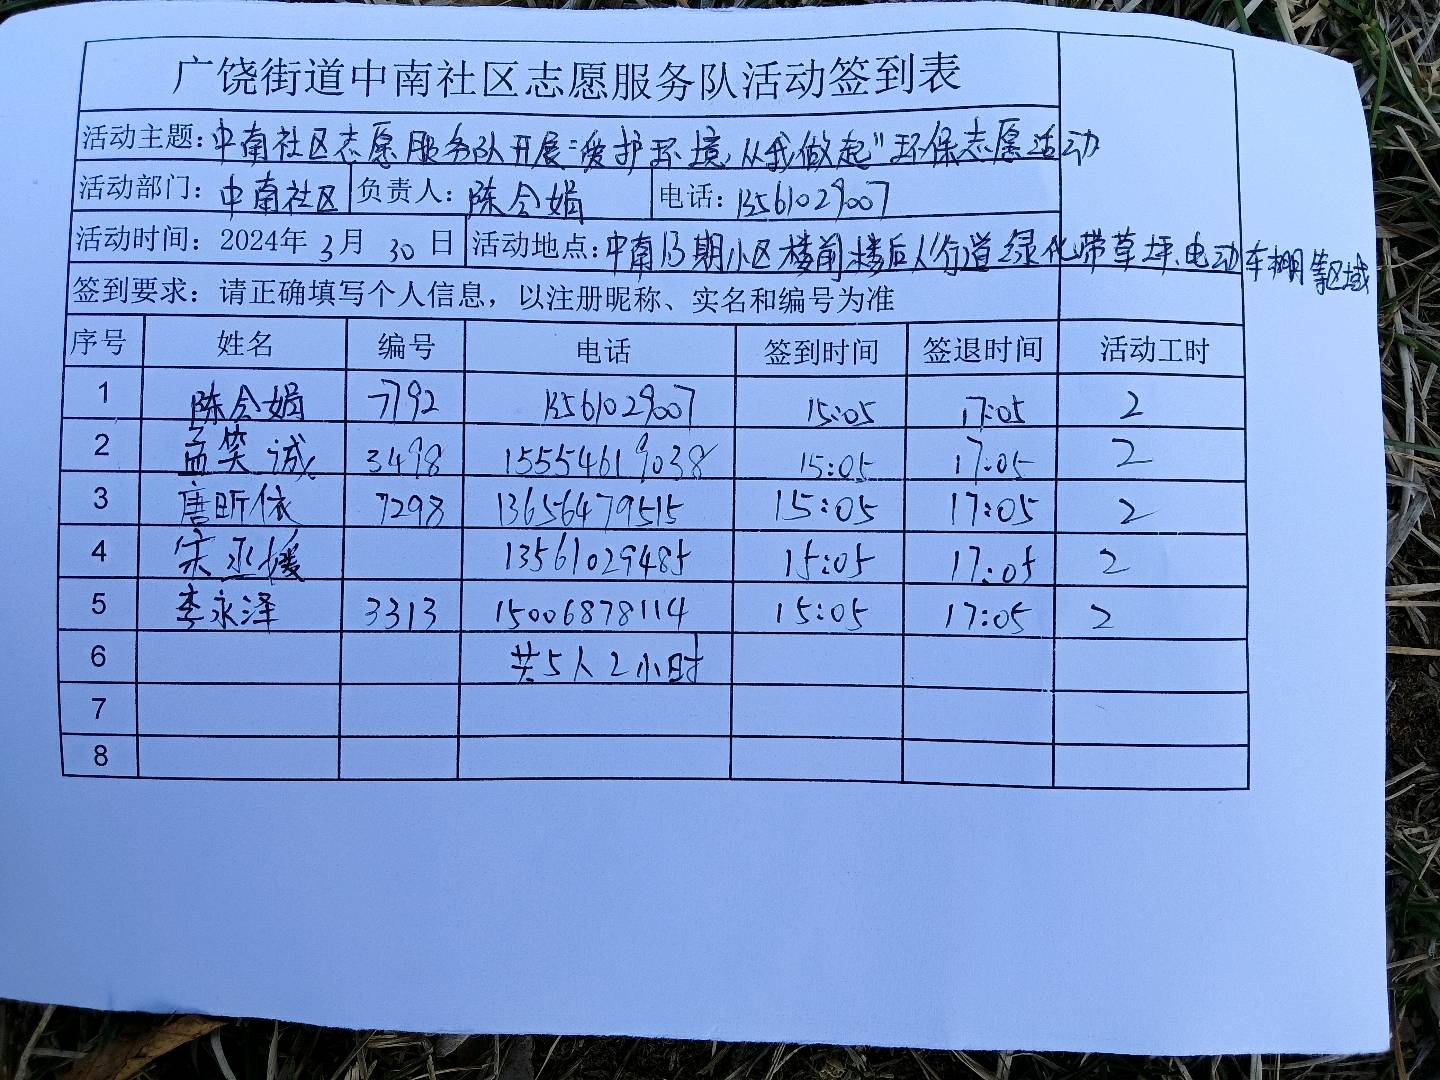 广饶街道中南社区志愿服务队活动签到表
活动主题：中南社区志愿服务队开展“爱护环境，从我做起”环保志愿活动
活动部门：中南社区 负责人：陈会娟 电话：13561029007
活动时间：2024年 3月 30日 活动地点：中南13期小区楼前楼后人行道绿化带草坪、电动车棚等区域
签到要求：请正确填写个人信息，以注册昵称、实名和编号为准
序号 姓名 编号 电话 签到时间 签退时间 活动工时
1 陈会娟 7792 13561029007 15:05 17:05 2
2 孟笑诚 3498 15554619038 15:05 17:05 2
3 唐昕依 7298 13656479515 15:05 17:05 2
4 宋丞媛 13561029485 15:05 17:05 2
5 李永泽 3313 15006878114 15:05 17:05 2
6 共5人2小时
7
8